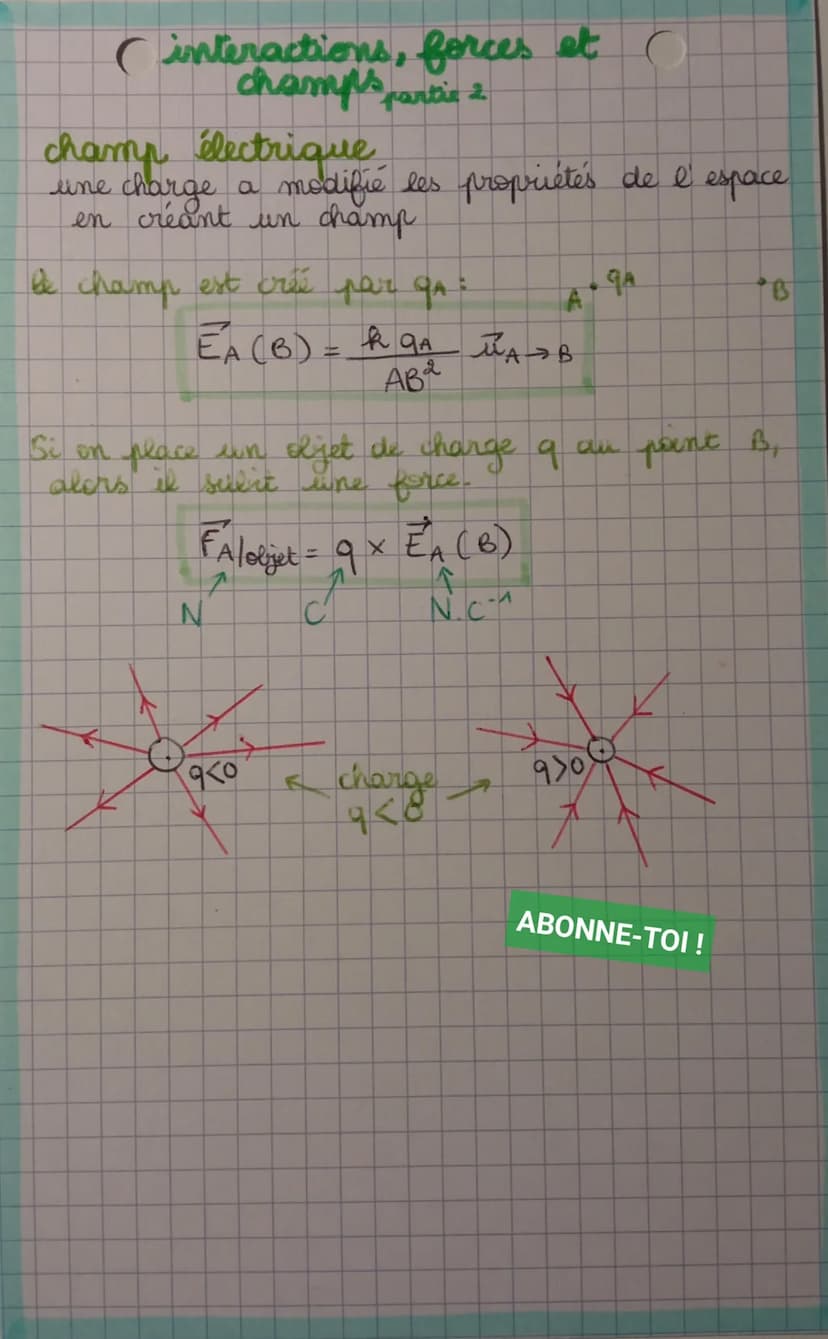 interactions, forces et
champs partie 2
champ électrique
une charge a modifié les propriétés de l'espace
en créant un champ
le champ est créé par qA :
A • qA • B
E⃗A (B) = k qA / AB² u⃗A→B
Si on place un objet de charge q au point B,
alors il subit une force.
F⃗A/objet = q × E⃗A (B)
N C N.C⁻¹
q<0
charge
q<0
q>0
ABONNE-TOI !